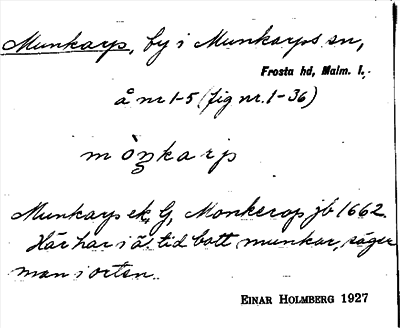 Munkarp, by i Munkarps sn,
Frosta hd, Malm. l.
å nr 1-5 (fig nr. 1-36)
mòŋkarp
Munkarp ek, G, Monkerop jb 1662.
Här har i ä. tid bott munkar, säger
man i orten.
EINAR HOLMBERG 1927